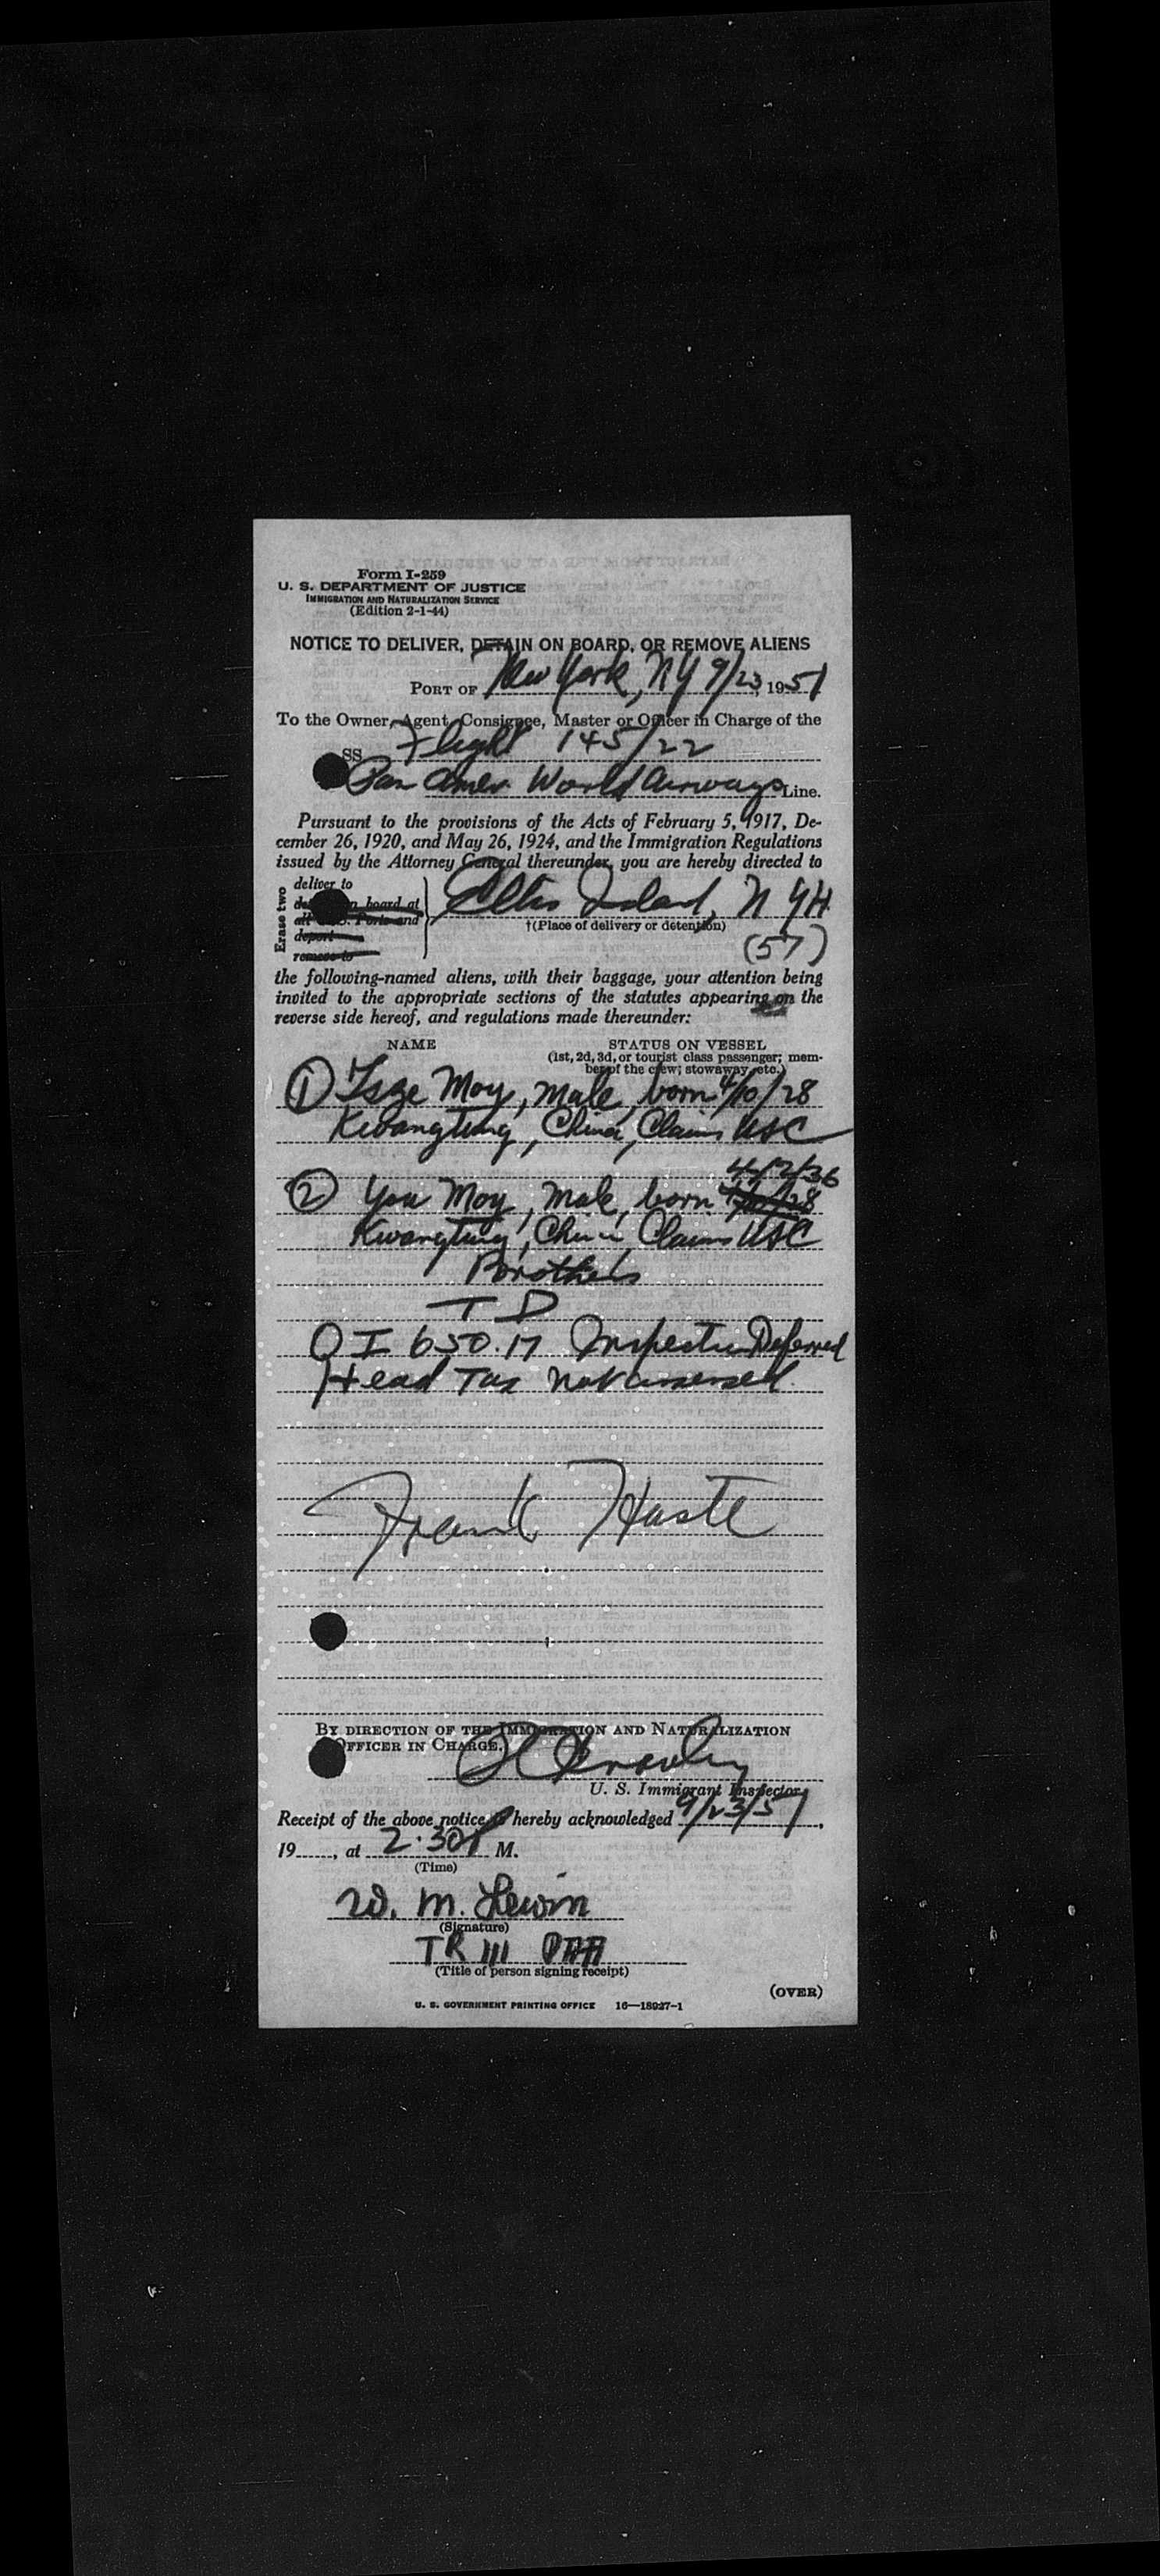 Form I-259
U. S. DEPARTMENT OF JUSTICE
IMMIGRATION AND NATURALIZATION SERVICE
(Edition 2-1-44)
NOTICE TO DELIVER, DETAIN ON BOARD, OR REMOVE ALIENS
PORT OF New York, NY 9/23, 1951
To the Owner, Agent, Consignee, Master or Officer in Charge of the
SS Flight 145/22
Pan Amer World Airways Line.
Pursuant to the provisions of the Acts of February 5, 1917, De-
cember 26, 1920, and May 26, 1924, and the Immigration Regulations
issued by the Attorney General thereunder, you are hereby directed to
Erase two
deliver to
board at
Ports and
deport
remove to
Ellis Island, N Y H
†(Place of delivery or detention)
(57)
the following-named aliens, with their baggage, your attention being
invited to the appropriate sections of the statutes appearing on the
reverse side hereof, and regulations made thereunder:
NAME STATUS ON VESSEL
(1st, 2d, 3d, or tourist class passenger; mem-
ber of the crew; stowaway, etc.)
① Moy, male, born 4/10/28
Kwangtung, China, Claims USC
4/2/36
② You Moy, male, born 4/10/28
Kwangtung, China Claims USC
Brothers
T D
O I 650.17 Inspection Deferred
Head Tax not assessed
Frank Haste
BY DIRECTION OF THE IMMIGRATION AND NATURALIZATION
OFFICER IN CHARGE.
U. S. Immigrant Inspector.
Receipt of the above notice is hereby acknowledged 9/23/51,
19......, at 2:30 P M.
(Time)
W. M. Lewin
(Signature)
TR III PAA
(Title of person signing receipt)
(OVER)
U. S. GOVERNMENT PRINTING OFFICE 16—18927-1